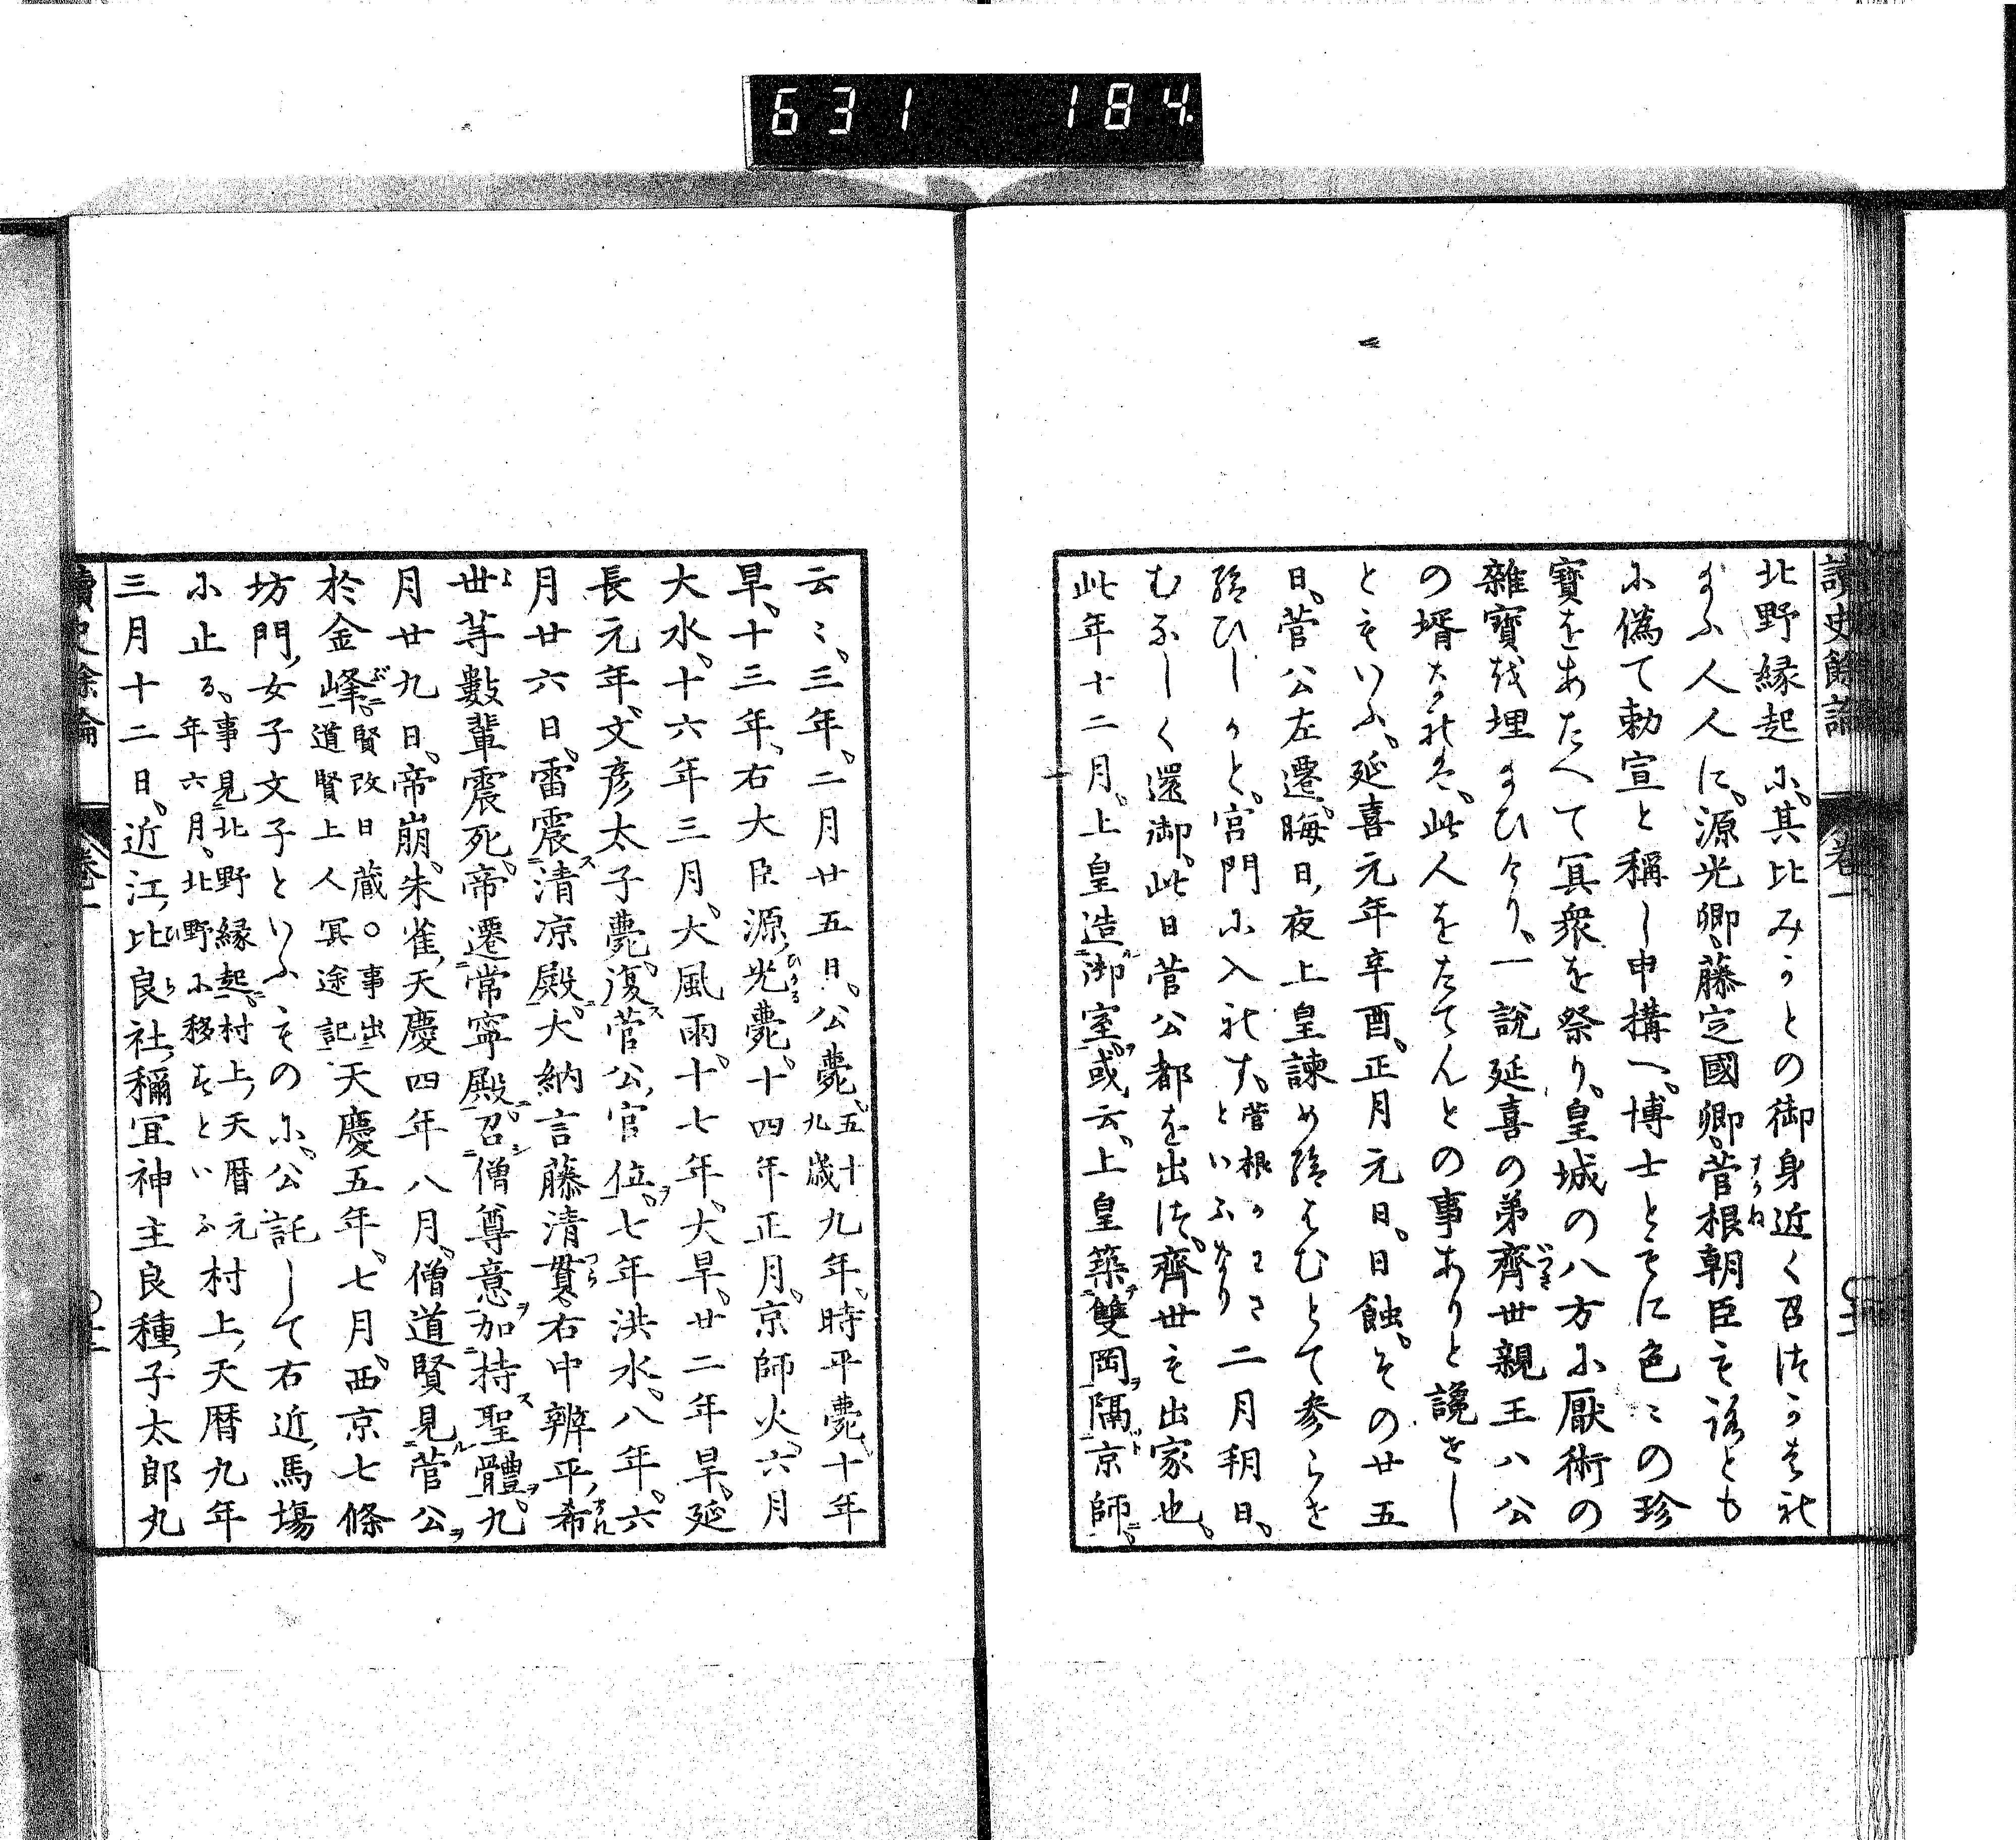 631 184
讀史餘論 卷一
北野縁起に、其比みかとの御身近く召つかはれ
給ふ人人に、源光卿、藤定國卿、菅根朝臣も諸とも
に偽て勅宣と稱し申搆へ、博士ともに色〻の珍
寳をあたへて冥衆を祭り、皇城の八方に厭術の
雜寳を埋給ひけり、一説延喜の弟齊世親王ハ公
の壻なれは、此人をたてんとの事ありと讒せし
ともいふ、延喜元年辛酉、正月元日、日蝕、その廿五
日、菅公左遷、晦日、夜上皇諫め給はむとて参らせ
給ひしかと、官門に入れす、菅根かわさといふめり二月朔日、
むなしく還御、此日菅公都を出つ、齊世も出家也、
此年十二月、上皇造御室、或云、上皇築雙岡隔京師、
云〻、三年、二月廿五日、公薨、五十九歳九年、時平薨、十年
旱、十三年、右大臣源光薨、十四年正月、京師火、六月
大水、十六年三月、大風雨、十七年、大旱、廿二年旱、延
長元年、文彦太子薨、復菅公官位、七年洪水、八年、六
月廿六日、雷震清凉殿、大納言藤清貫、右中辨平希
世等數輩震死、帝遷常寧殿、召僧尊意加持聖體、九
月廿九日、帝崩、朱雀天慶四年八月、僧道賢見菅公
於金峰、賢改日蔵○事出道賢上人冥途記天慶五年、七月、西京七條
坊門、女子文子といふものに、公託して右近馬塲
に止る、事見北野縁起、村上天暦元年六月、北野に移すといふ村上、天暦九年
三月十二日、近江比良社、禰宜神主良種、子太郎丸
讀史餘論 卷一